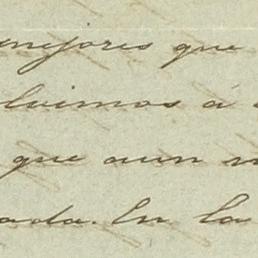 mejores que
luimos á
que aun
ada. En la